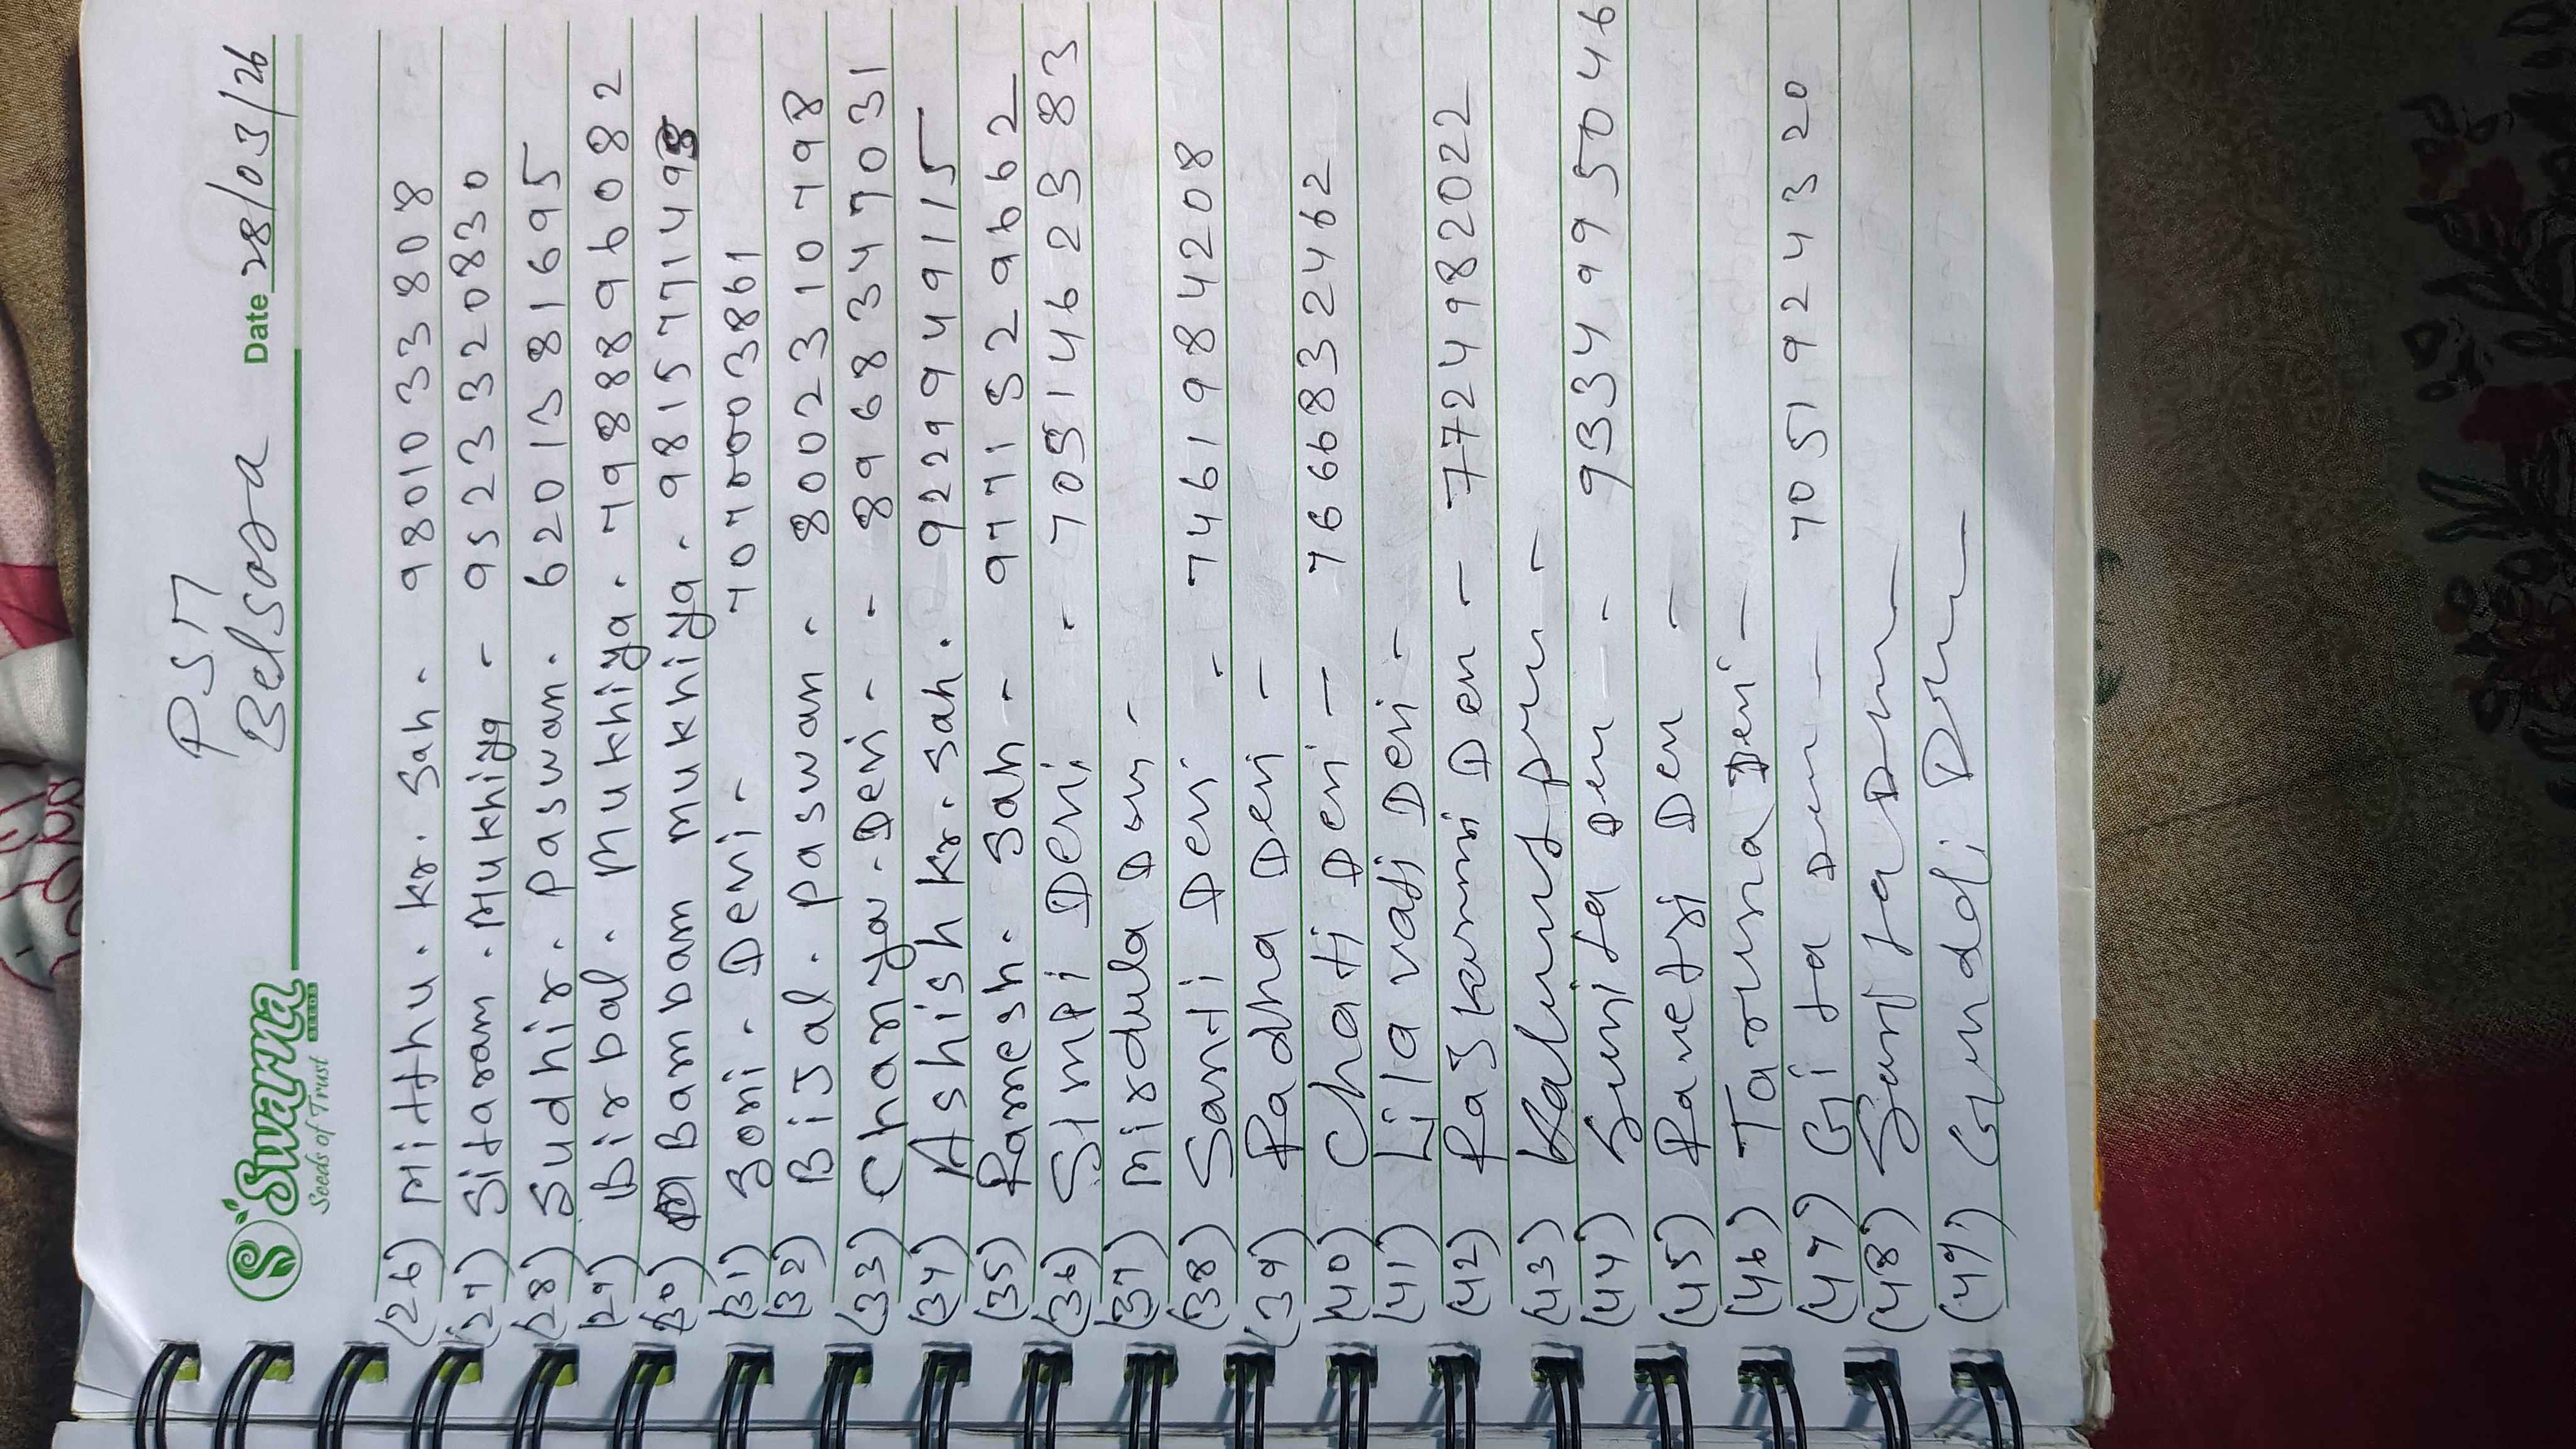 PSM
Belsara
Date 28/03/26
Swarna
SEEDS
Seeds of Trust
(26) Mitthu. Kr. Sah. 9801033808
(27) Sitaram. Mukhiya - 9523320830
(28) Sudhir. Paswan. 6201381695
(29) Birbal. Mukhiya. 7988896082
(30) Bambam Mukhiya. 981577149
(31) Soni. Devi - 7070003861
(32) Bijal. Paswan. 8002310798
(33) Chanya. Devi - - 8968347031
(34) Ashish Kr. Sah. 9229949115
(35) Ramesh. Sah - 9771529662
(36) Simpi Devi - 7051462383
(37) Mirdula Devi -
(38) Santi Devi - 7461984208
(39) Radha Devi -
(40) Chati Devi - 7666832462
(41) Lila vati Devi -
(42) Rajkumari Devi - 7724982022
(43)
(44) Sunita Devi - 9334995046
(45) Devi -
(46) Devi -
(47) Gita Devi - 7051924320
(48) Devi
(49) Devi